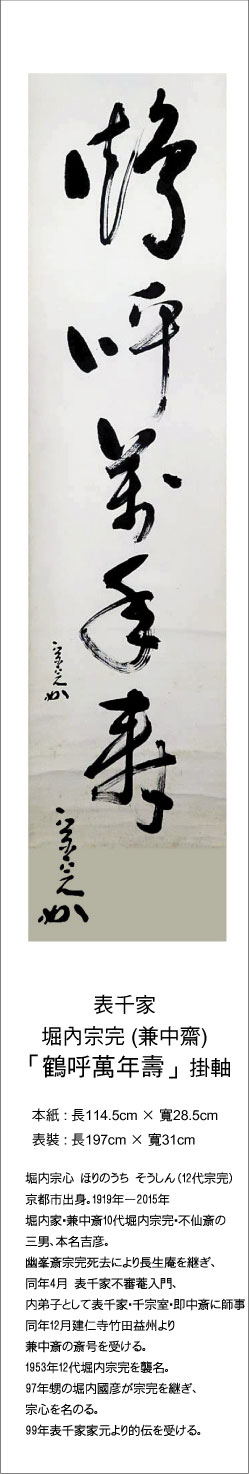 鶴呼萬年寿
宗完
宗完
表千家
堀內宗完 (兼中齋)
「鶴呼萬年壽」掛軸
本紙 : 長114.5cm × 寬28.5cm
表裝 : 長197cm × 寬31cm
堀内宗心 ほりのうち そうしん (12代宗完)
京都市出身。1919年－2015年
堀内家・兼中斎10代堀内宗完・不仙斎の
三男、本名吉彦。
幽峯斎宗完死去により長生庵を継ぎ、
同年4月 表千家不審菴入門、
内弟子として表千家・千宗室・即中斎に師事
同年12月建仁寺竹田益州より
兼中斎の斎号を受ける。
1953年12代堀内宗完を襲名。
97年甥の堀内國彦が宗完を継ぎ、
宗心を名のる。
99年表千家家元より的伝を受ける。